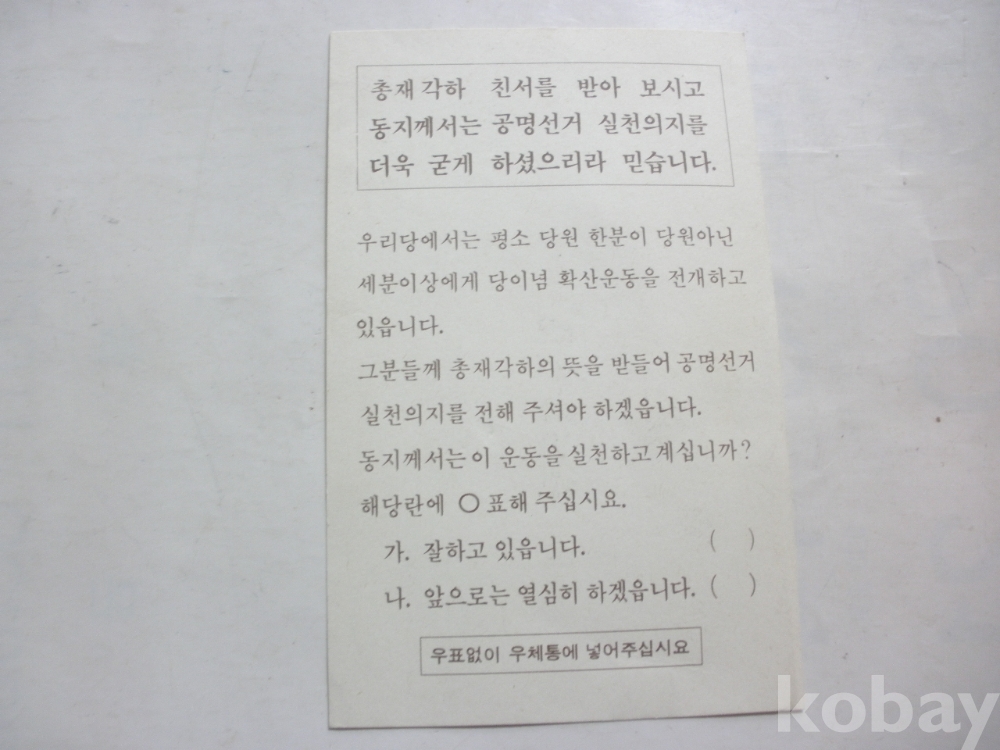 총재각하 친서를 받아 보시고
동지께서는 공명선거 실천의지를
더욱 굳게 하셨으리라 믿습니다.
우리당에서는 평소 당원 한분이 당원아닌
세분이상에게 당이념 확산운동을 전개하고
있읍니다.
그분들께 총재각하의 뜻을 받들어 공명선거
실천의지를 전해 주셔야 하겠읍니다.
동지께서는 이 운동을 실천하고 계십니까?
해당란에 ○ 표해 주십시요.
가. 잘하고 있읍니다. ( )
나. 앞으로는 열심히 하겠읍니다. ( )
우표없이 우체통에 넣어주십시요
kobay